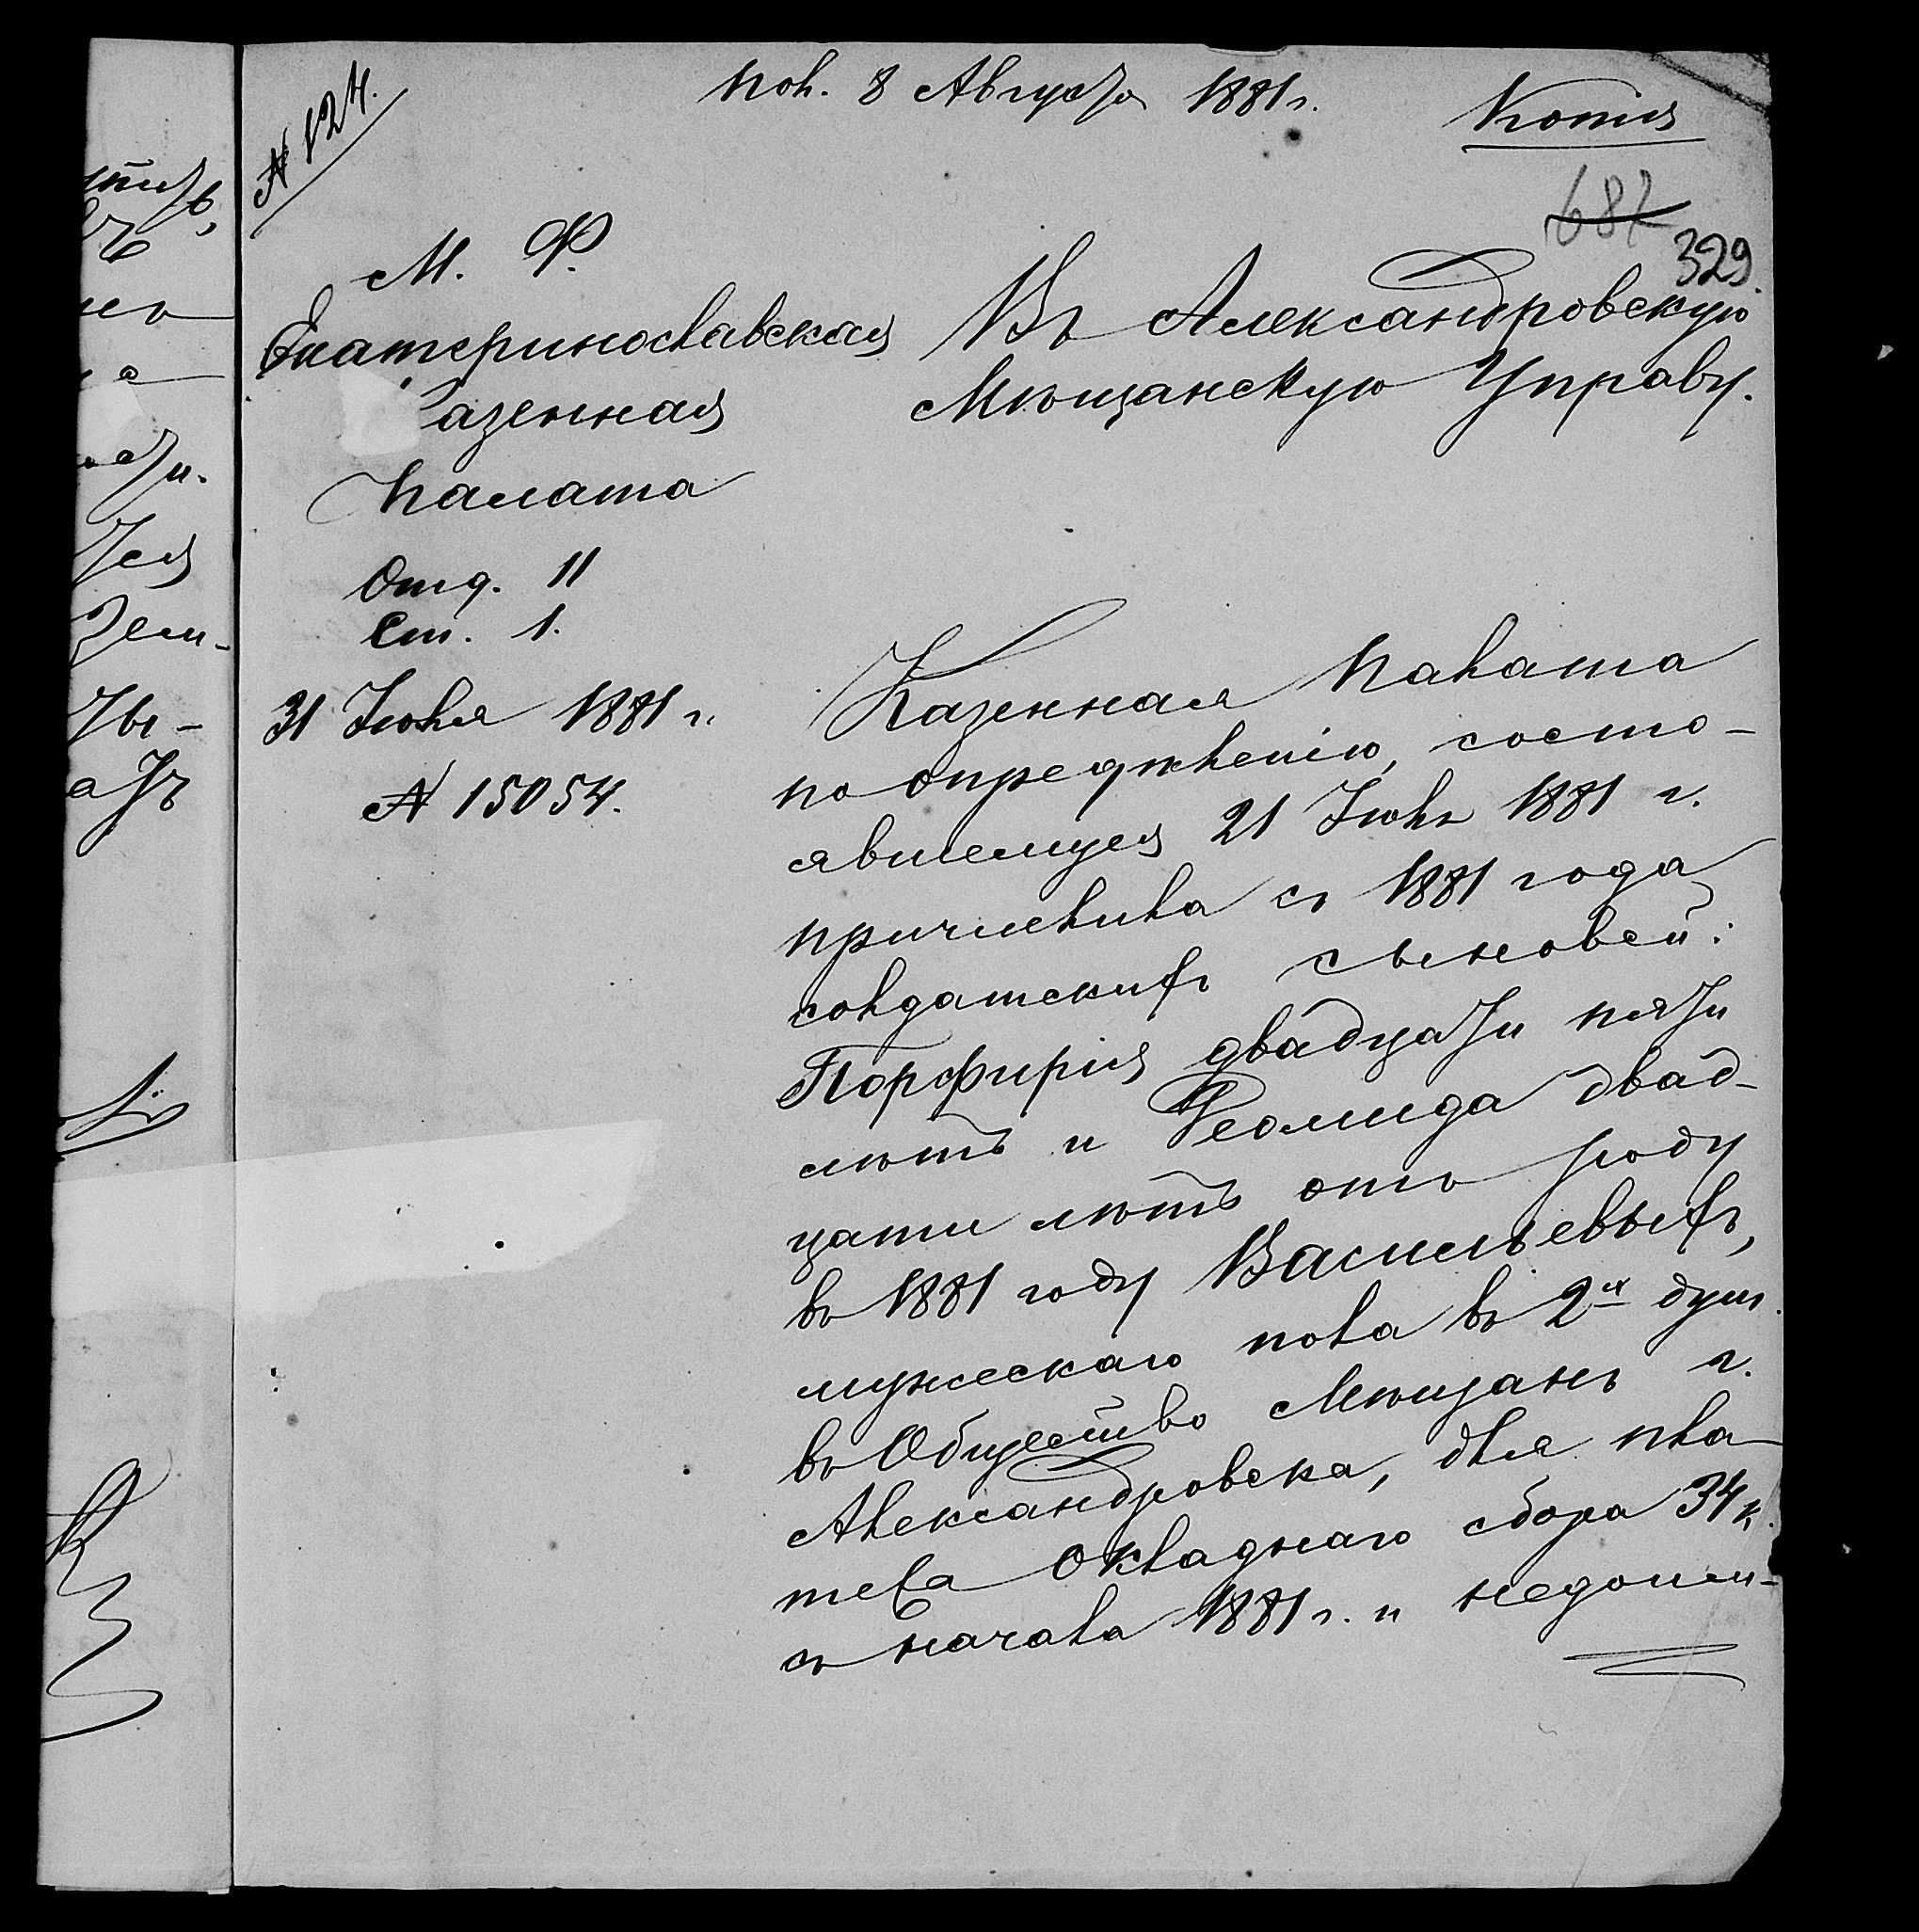 № 124.
Пол. 8 Августа 1881 г.
Копія
687
329.
М. Ф.
Екатеринославская
Казенная
Палата
Отд. II
Ст. 1.
31 Іюля 1881 г.
№ 15054.
Въ Александровскую
Мѣщанскую Управу.
Казенная Палата
по опредѣленію, состо-
явшемуся 21 Іюля 1881 г.
причислила съ 1881 года
солдатскихъ сыновей:
Порфирія двадцати пяти
лѣтъ и Леонида двад-
цати лѣтъ отъ роду
въ 1881 году Васильевыхъ,
мужескаго пола въ 2х душ.
въ Общество Мѣщанъ г.
Александровска, для пла
тежа окладнаго сбора 34 к.
съ начала 1881 г. и недоим-